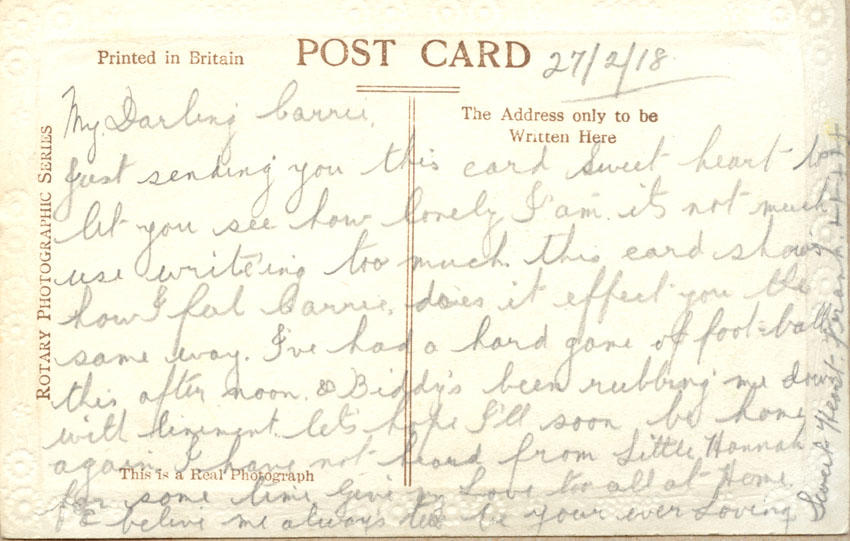 Printed in Britain
POST CARD
27/2/18
The Address only to be
Written Here
ROTARY PHOTOGRAPHIC SERIES
My Darling Carrie,
Just sending you this card Sweet heart to
let you see how lonely I am. it's not much
use writeing too much this card shows
how I feel Carrie, does it effect you the
same way. I've had a hard game of foot-ball
this after noon & Biddy's been rubbing me down
with linement let's hope I'll soon be home
again I have not heard from Little Hannah
for some time Give my Love to all at Home.
belive me always to be your ever Loving
Sweet Heart Frank
This is a Real Photograph